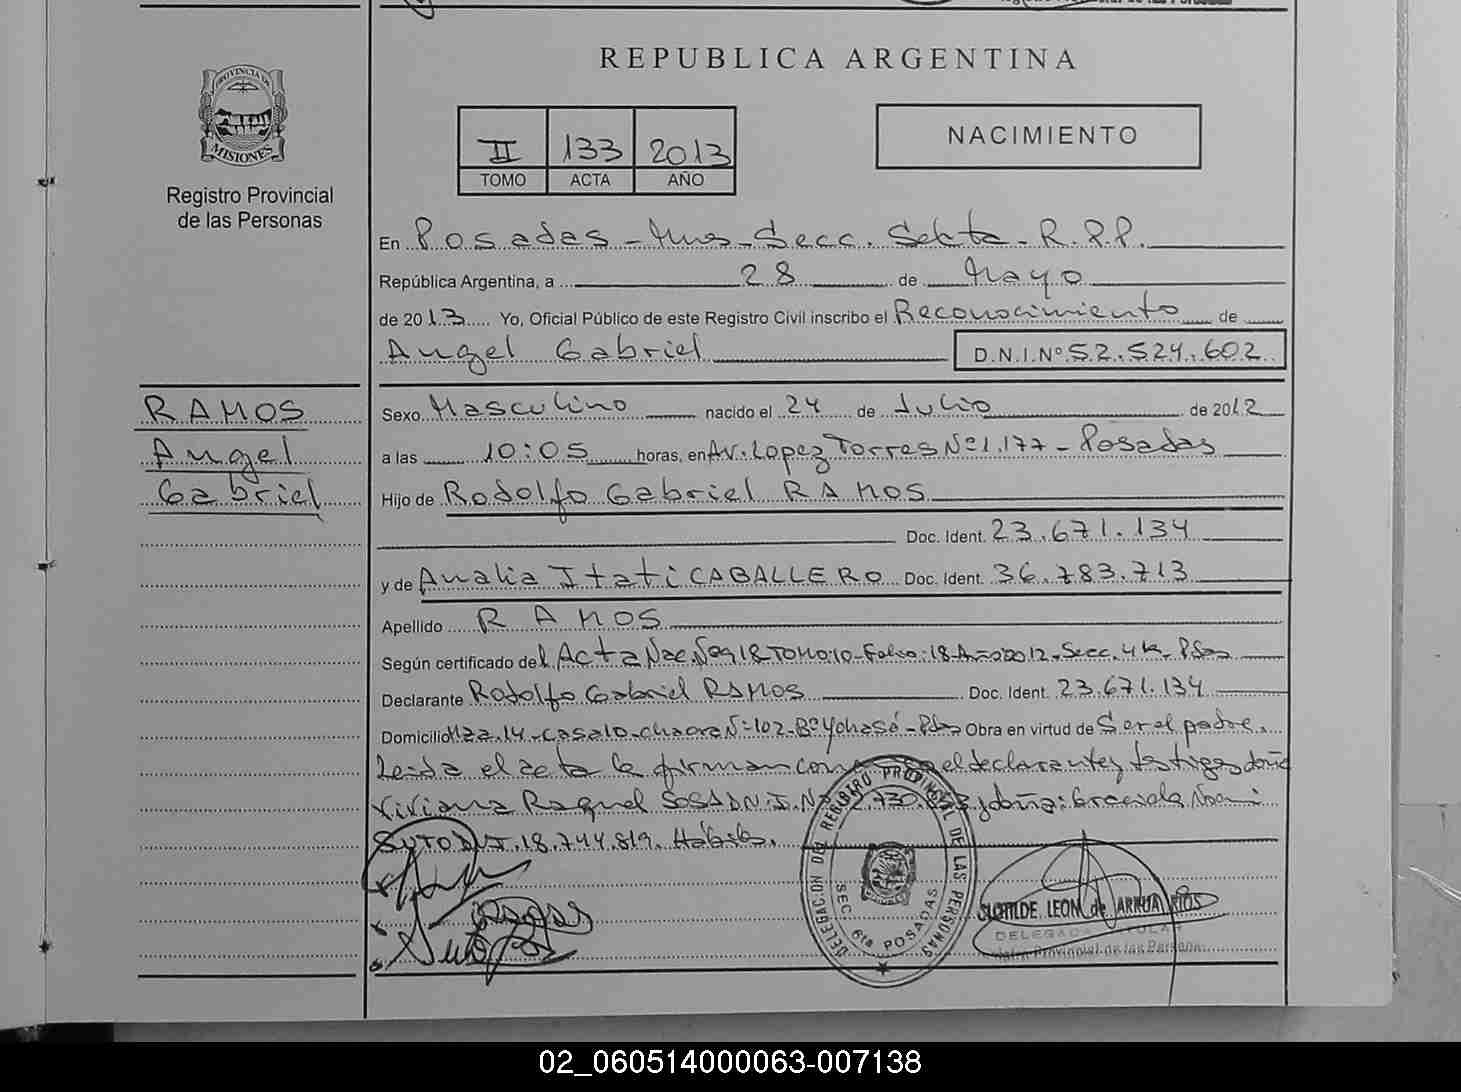 REPUBLICA ARGENTINA
PROVINCIA DE
MISIONES
Registro Provincial
de las Personas
II 133 2013
TOMO ACTA AÑO
NACIMIENTO
En Posadas - Mnes - Secc. Sexta - R.P.P.
República Argentina, a 28 de Mayo
de 2013 Yo, Oficial Público de este Registro Civil inscribo el Reconocimiento de
Angel Gabriel D.N.I.Nº 52.524.602
RAMOS
Angel
Gabriel
Sexo Masculino nacido el 24 de Julio de 2012
a las 10:05 horas, en Av. Lopez Torres Nº 1.177 - Posadas
Hijo de Rodolfo Gabriel RAMOS
Doc. Ident. 23.671.134
y de Analia Itati CABALLERO Doc. Ident. 36.783.713
Apellido RAMOS
Según certificado del Acta Nac. Nº 918 TOMO:10 - Folio:18 - Año 2012 - Secc. 4ta - Pdas
Declarante Rodolfo Gabriel RAMOS Doc. Ident. 23.671.134
Domicilio Mza. 14 - Casa 10 - Chacra Nº 102 - Bº Yohasá - Pdas Obra en virtud de Ser el padre.
Leida el acta la firman el declarante y testigos doña
Viviana Raquel SOSA D.N.I. Nº .730. y doña: Graciela Noemi
SUTO D.N.I. 18.744.819. Hábiles.
DELEGACION DEL REGISTRO PROVINCIAL DE LAS PERSONAS
SEC. 6ta POSADAS
CLOTILDE LEON de ARRUA RIOS
DELEGADA TITULAR
Provincial de las Personas
02_060514000063-007138